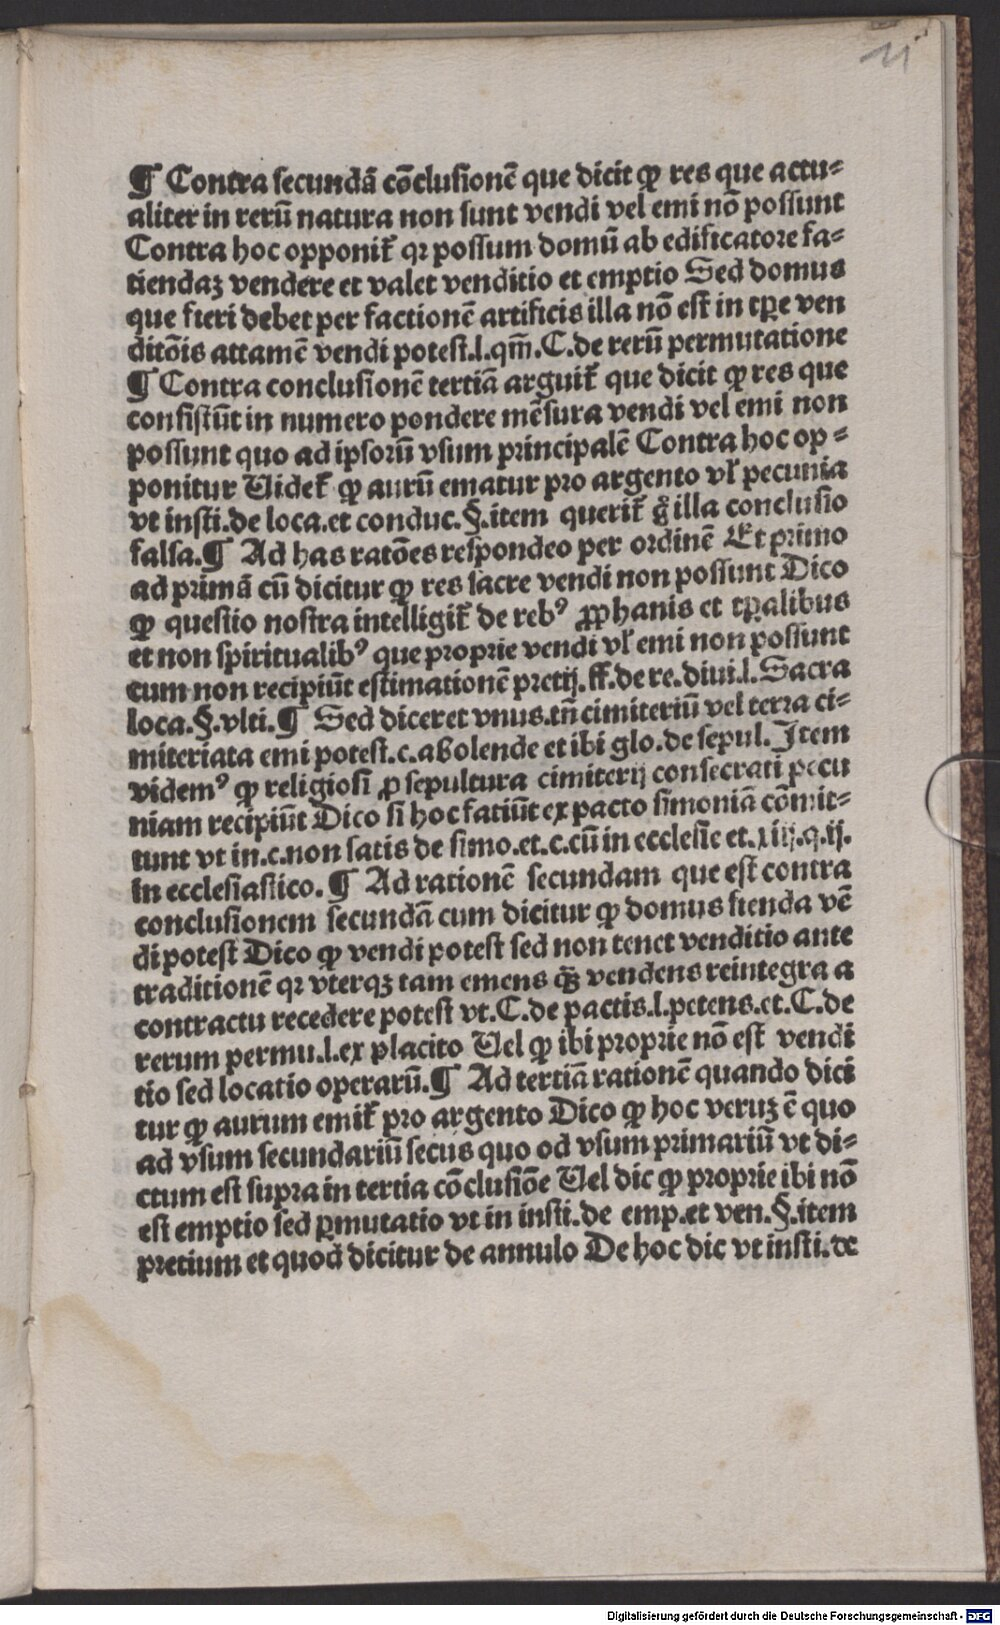 11
¶ Contra secundā cōclusionē que dicit ꝙ res que actu⸗
aliter in rerū natura non sunt vendi vel emi nō possunt
Contra hoc opponit̄ qꝛ possum domū ab edificatore fa⸗
tiendaꝫ vendere et valet venditio et emptio Sed domus
que fieri debet per factionē artificis illa nō est in tꝑe ven
ditōis attamē vendi potest.l.qm̄.C.de rerū permutatione
¶ Contra conclusionē tertiā arguit̄ que dicit ꝙ res que
consistūt in numero pondere mēsura vendi vel emi non
possunt quo ad ipsorū vsum principalē Contra hoc op⸗
ponitur Uidet̄ ꝙ aurū ematur pro argento vl̄ pecunia
vt insti.de loca.et conduc.§.item querit̄ gͦ illa conclusio
falsa.¶ Ad has ratōes respondeo per ordinē Et primo
ad primā cū dicitur ꝙ res sacre vendi non possunt Dico
ꝙ questio nostra intelligit̄ de rebꝰ ꝓphanis et tꝑalibus
et non spiritualibꝰ que proprie vendi vl̄ emi non possunt
cum non recipiūt estimationē pretij.ff.de re.diui.l.Sacra
loca.§.vlti.¶ Sed diceret vnus.tn̄ cimiteriū vel terra ci⸗
miteriata emi potest.c.abolende et ibi glo.de sepul. Item
videmꝰ ꝙ religiosi ꝓ sepultura cimiterij consecrati pecu
niam recipiūt Dico si hoc fatiūt ex pacto simoniā cōmit⸗
tunt vt in.c.non satis de simo.et.c.cū in ecclesie et.xiij.q.ij.
in ecclesiastico.¶ Ad rationē secundam que est contra
conclusionem secundā cum dicitur ꝙ domus fienda vē
di potest Dico ꝙ vendi potest sed non tenet venditio ante
traditionē qꝛ vterqꝫ tam emens ꝙ̄ vendens reintegra a
contractu recedere potest vt.C.de pactis.l.petens.et.C.de
rerum permu.l.ex placito Uel ꝙ ibi proprie nō est vendi
tio sed locatio operarū.¶ Ad tertiā rationē quando dici
tur ꝙ aurum emit̄ pro argento Dico ꝙ hoc veruꝫ ē quo
ad vsum secundariū secus quo od vsum primariū vt di⸗
ctum est supra in tertia cōclusiōe Uel dic ꝙ proprie ibi nō
est emptio sed ꝑmutatio vt in insti.de emp.et ven.§.item
pretium et quod dicitur de annulo De hoc dic vt insti.de
Digitalisierung gefördert durch die Deutsche Forschungsgemeinschaft - DFG